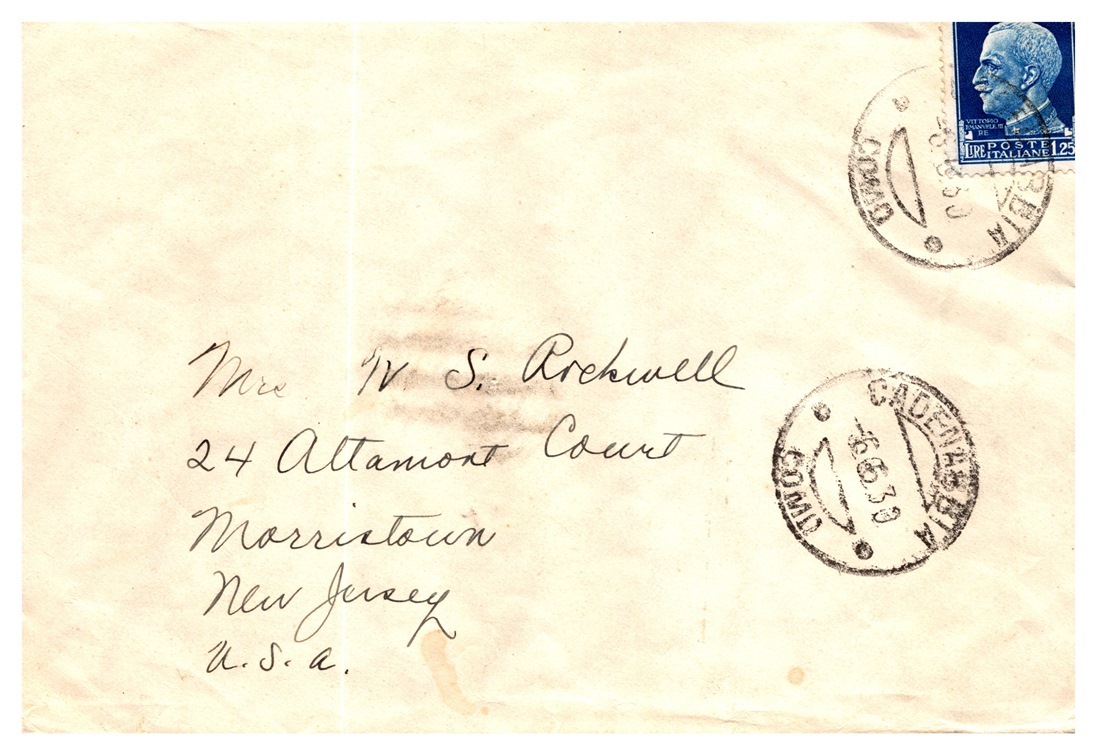 VITTORIO
EMANUELE III
RE
LIRE POSTE ITALIANE 1.25
COMO
Mrs W. S. Rockwell
24 Altamont Court
Morristown
New Jersey
U.S.A.
CADENABBIA
COMO